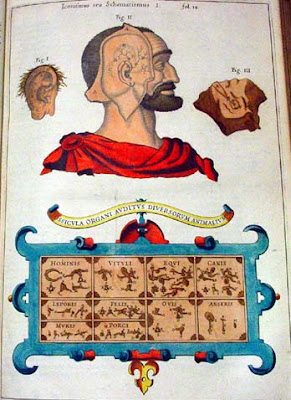 Iconismus seu Schematismus I. fol. 14
Fig. II
Fig. I
Fig. III
OSSICULA ORGANI AUDITUS DIVERSORUM ANIMALIUM
HOMINIS VITULI EQUI CANIS
LEPORIS FELIS OVIS ANSERIS
MURIS PORCI